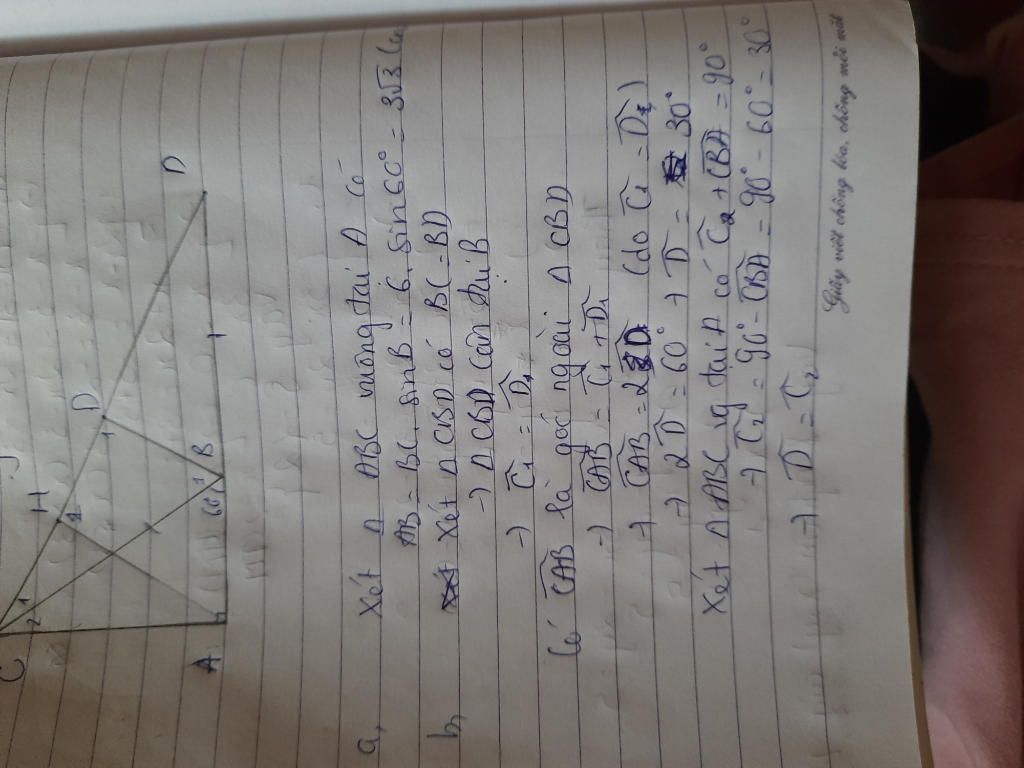 C
2 1
H
1
2
D
1
D
A
60° 1
B
a, Xét Δ ABC vuông tại A có
AB = BC. sinB = 6. sin60° = 3√3 (cm
b, Xét Δ CBD có BC = BD
→ Δ CBD cân tại B
→ Ĉ₁ = D̂₁
Có CAB là góc ngoài Δ CBD
→ CAB = Ĉ₁ + D̂₁
→ CAB = 2D̂ (do Ĉ₁ = D̂₁)
→ 2D̂ = 60° → D̂ = 30°
Xét Δ ABC vg tại A có Ĉ₂ + CBA = 90°
→ Ĉ₂ = 90° - CBA = 90° - 60° = 30°
→ D̂ = Ĉ₂
Giấy viết chống lóa, chống mỏi mắt